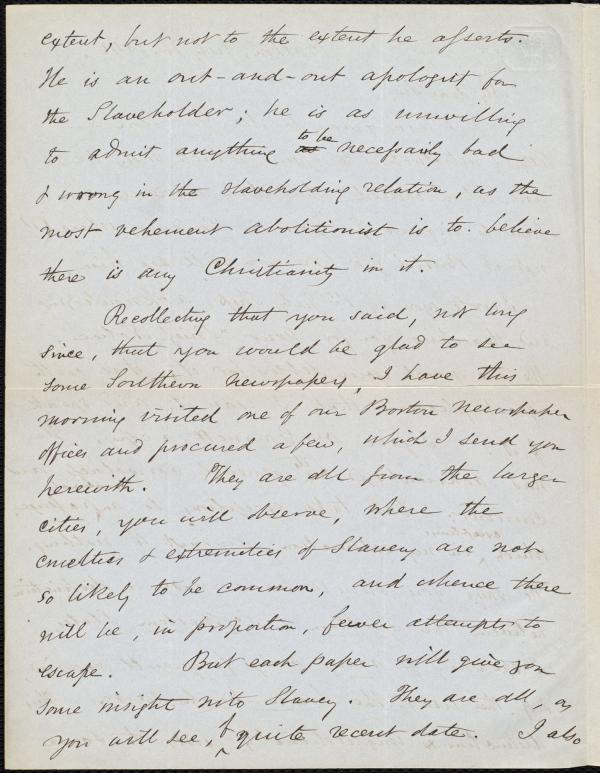 extent, but not to the extent he asserts.
He is an out-and-out apologist for
the Slaveholder; he is as unwilling
to admit anything to be necessarily bad
& wrong in the slaveholding relation, as the
most vehement abolitionist is to believe
there is any Christianity in it.
Recollecting that you said, not long
since, that you would be glad to see
some Southern newspapers, I have this
morning visited one of our Boston newspaper
offices and procured a few, which I send you
herewith. They are all from the larger
cities, you will observe, where the
cruelties & extremities of Slavery are not
so likely to be common, and whence there
will be, in proportion, fewer attempts to
escape. But each paper will give you
some insight into Slavery. They are all, as
you will see, of quite recent date. I also